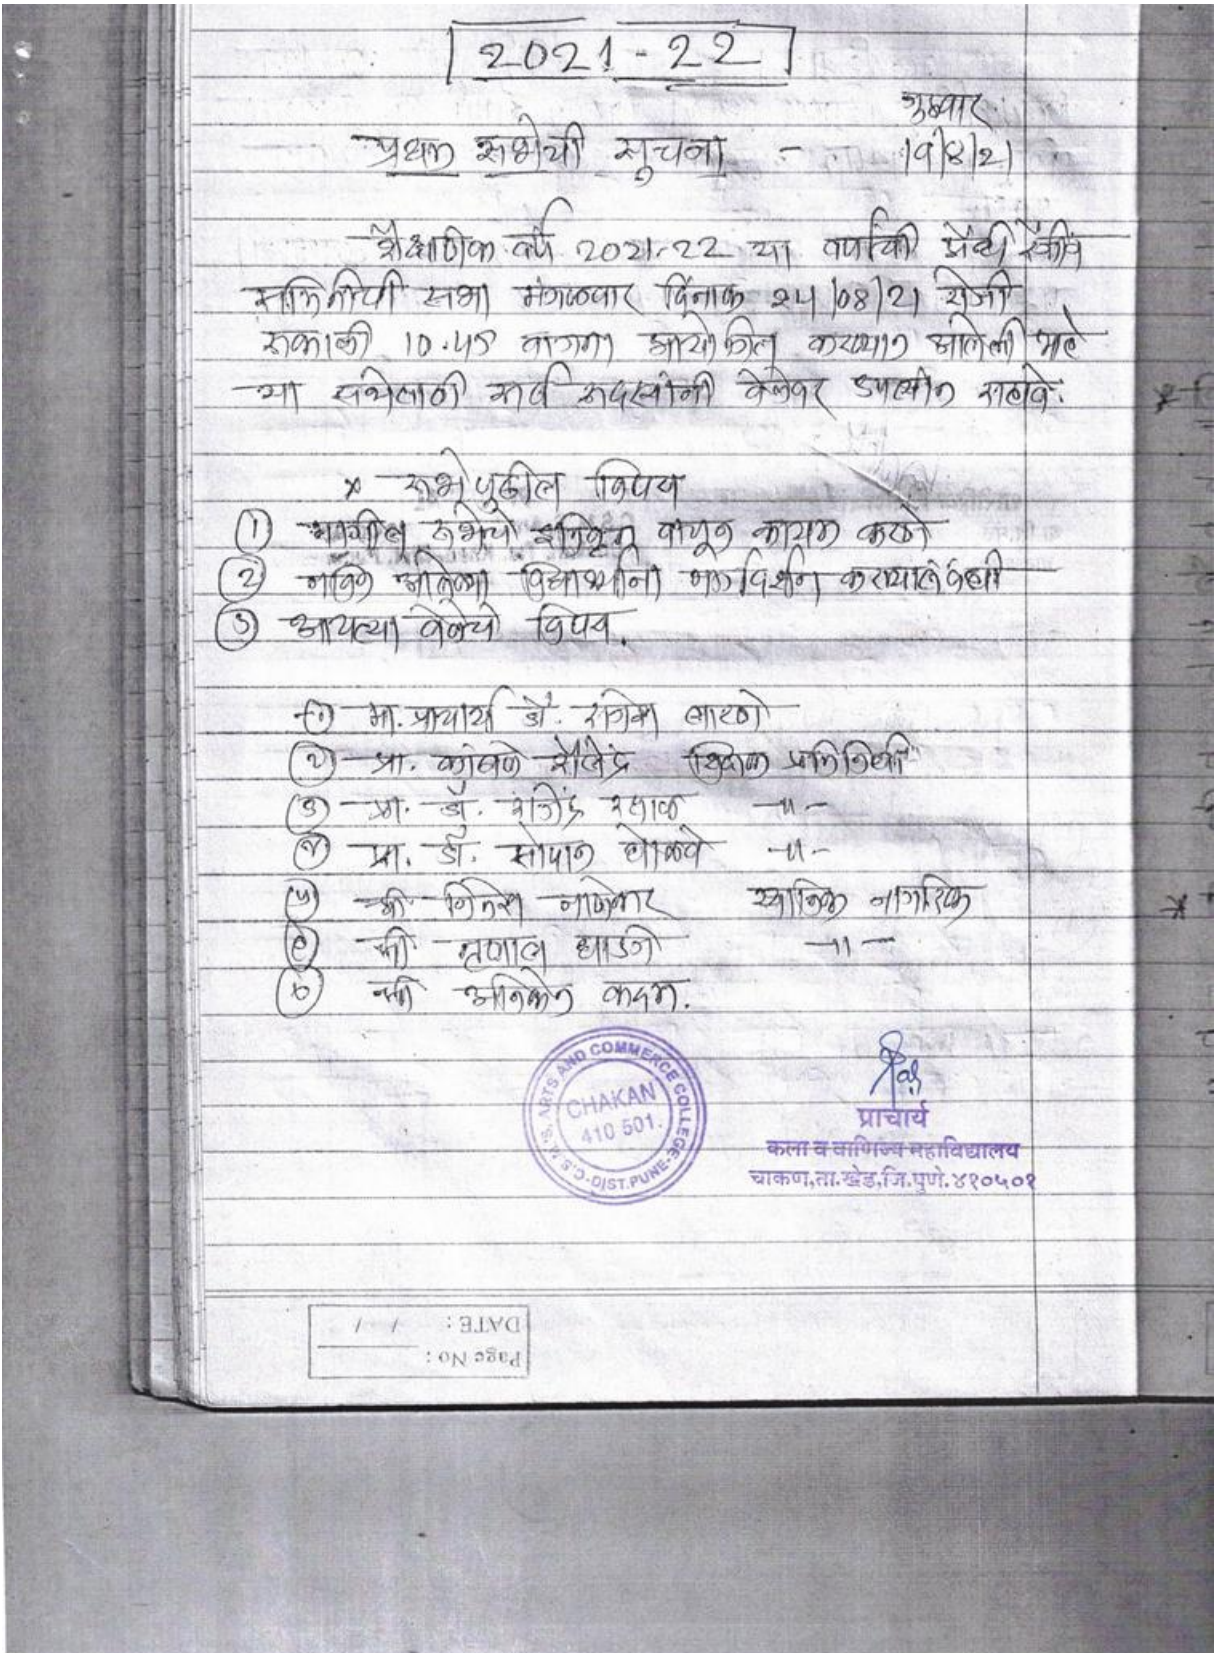 2021-22
गुरुवार
प्रथम सभेची सूचना - 19/8/21
शैक्षणिक वर्ष 2021-22 या वर्षाची अँटी रॅगींग
समितीची सभा मंगळवार दिनांक 24/08/21 रोजी
सकाळी 10.45 वाजता आयोजित करण्यात आलेली आहे
या सभेसाठी सर्व सदस्यांनी वेळेवर उपस्थीत राहावे.
× सभेपुढील विषय
① मागील सभेचे इतिवृत्त वाचून कायम करणे
② नविन आलेल्या विद्यार्थ्यांना मार्गदर्शन
③ आयत्या वेळेचे विषय.
① मा. प्राचार्य डॉ. राजेंद्र लाटणे
② प्रा. कांबळे शैलेंद्र शिक्षक प्रतिनिधी
③ प्रा. डॉ. राजेंद्र -॥-
④ प्रा. डॉ. सोपान -॥-
⑤ श्री स्थानिक नागरिक
⑥ श्री मृणाल -॥-
⑦ श्री अनिकेत कदम.
C.S.M.S'S. ARTS AND COMMERCE COLLEGE
CHAKAN
410 501.
DIST.PUNE
प्राचार्य
कला व वाणिज्य महाविद्यालय
चाकण,ता.खेड,जि.पुणे.४१०५०१
Page No :
DATE : / /